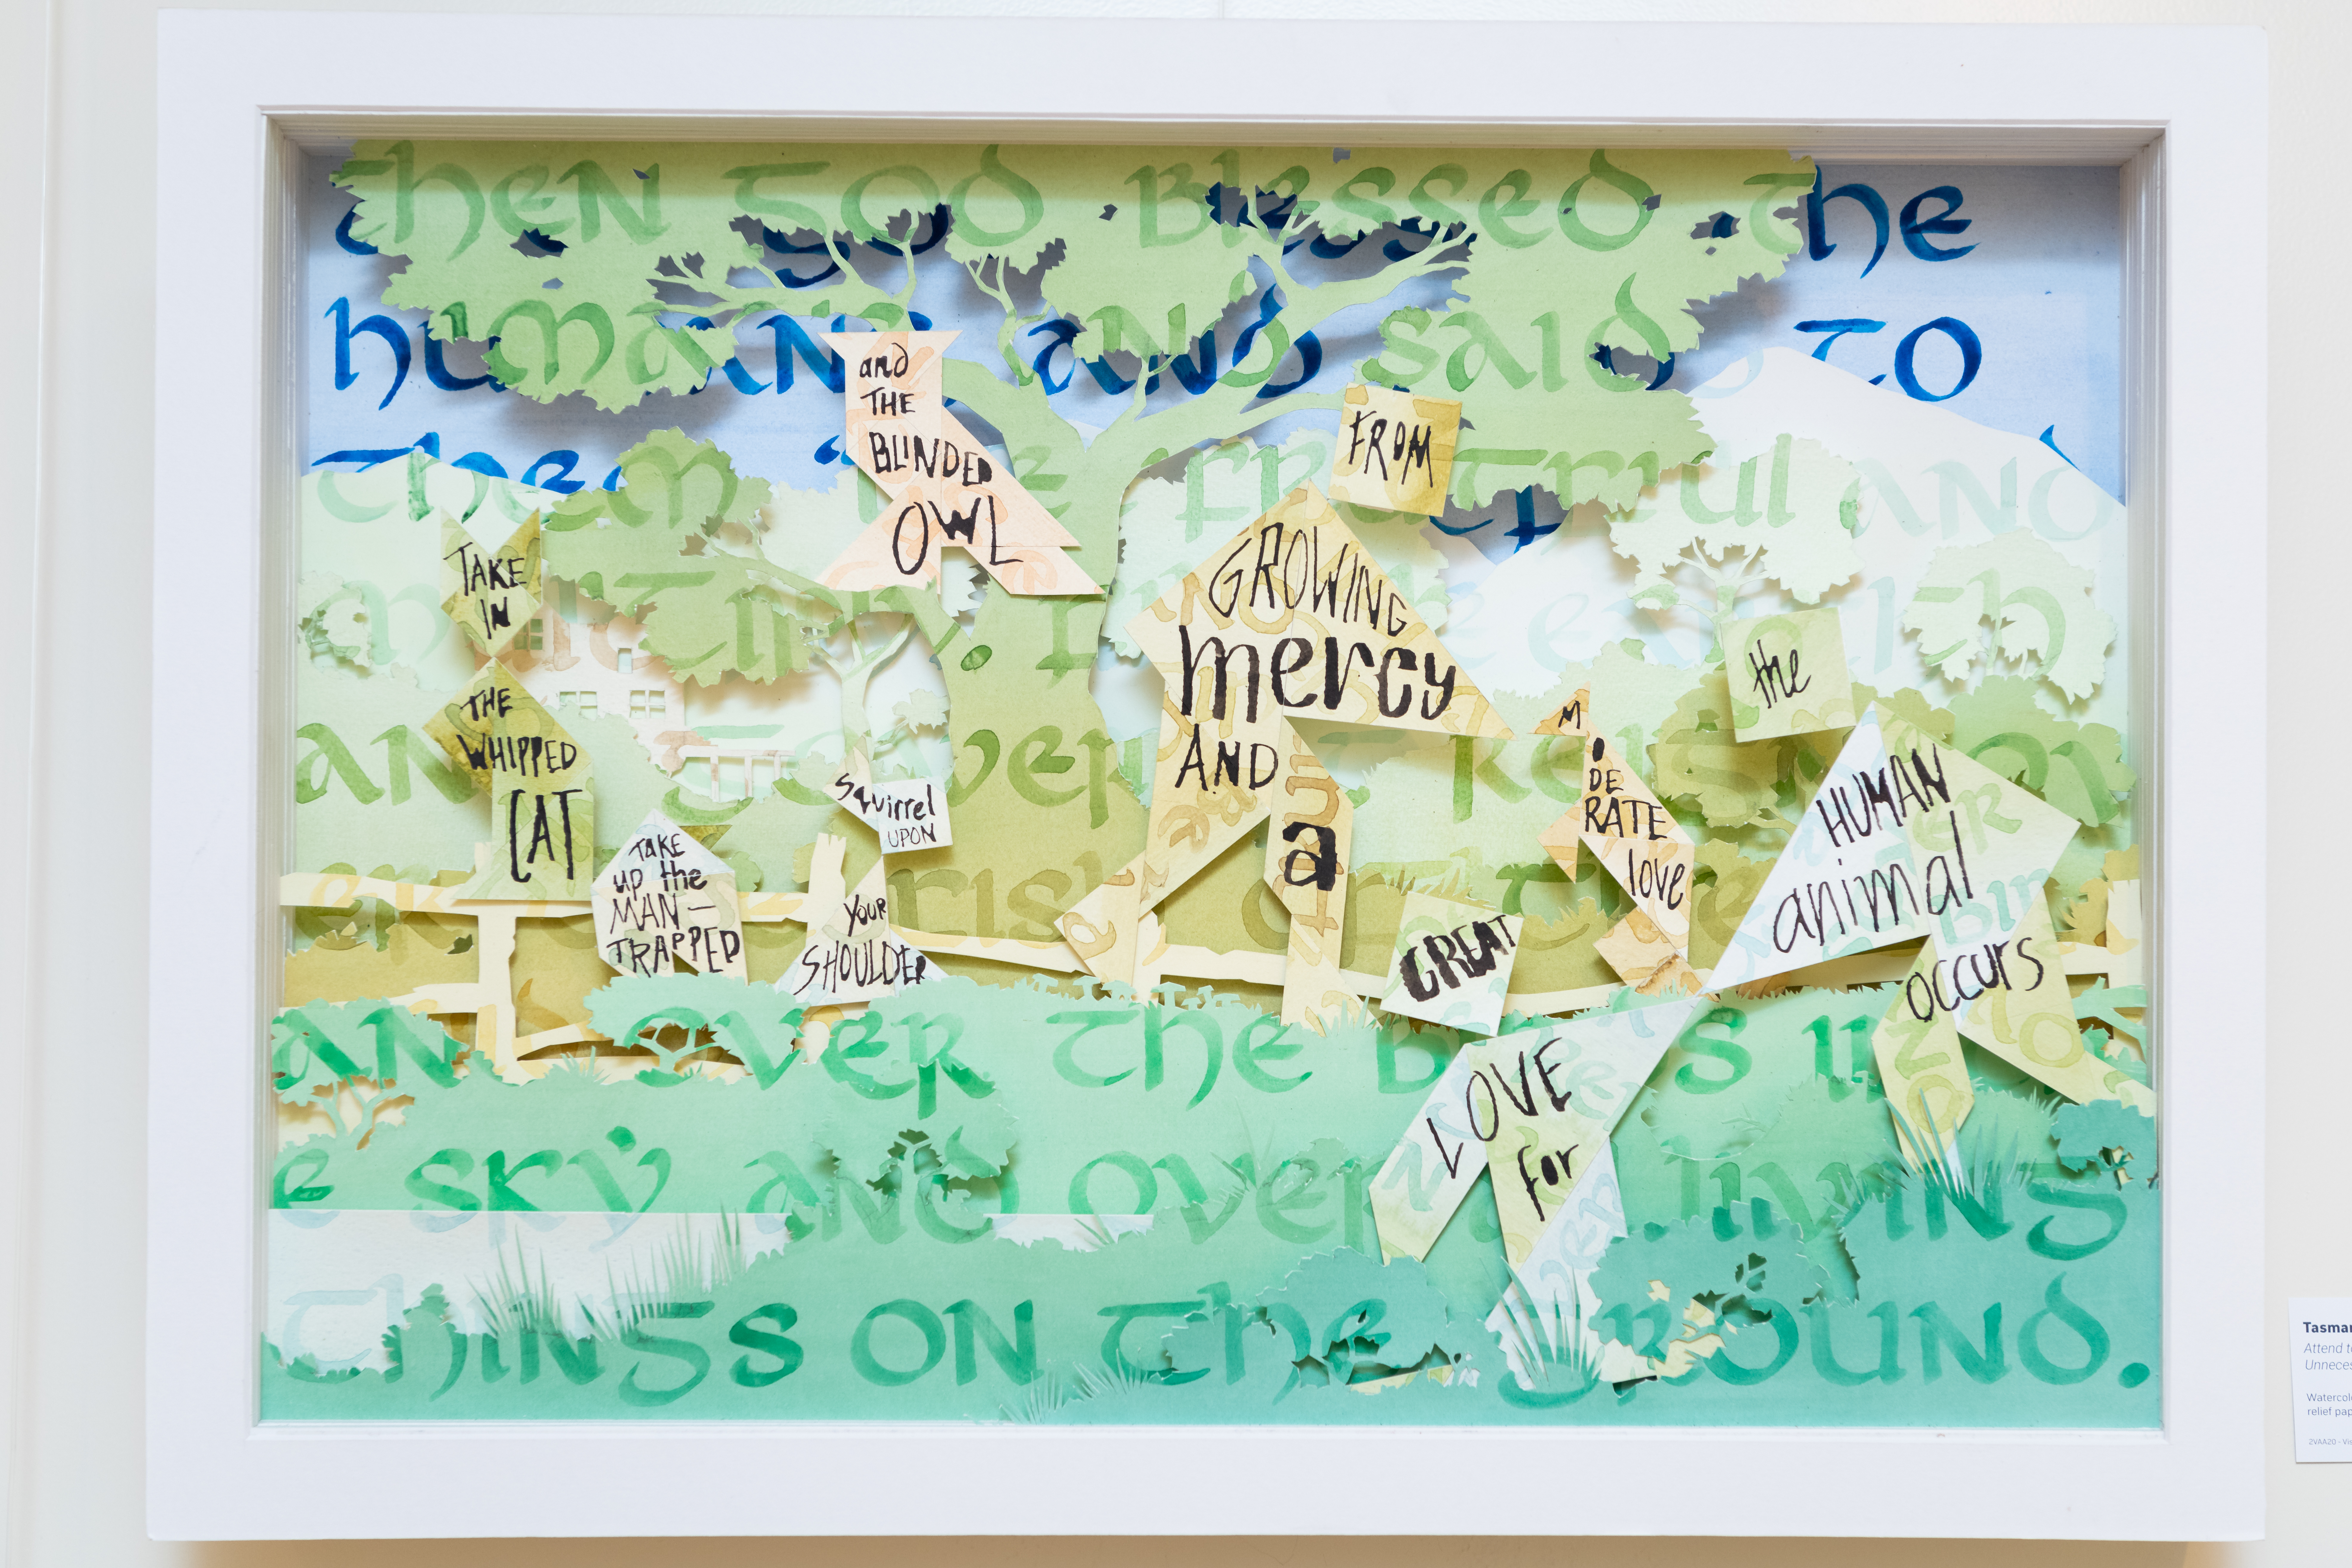 Then God Blessed The
humans and said to
Them "Be fruitful and
multiply. Fill the earth
and govern it. Reign ov
er the fish of the
and over the birds in
e sky and over living
things on the ground.
and
THE
BLINDED
OWL
TAKE
IN
THE
WHIPPED
CAT
TAKE
up the
MAN—
TRAPPED
Squirrel
UPON
YOUR
SHOULDER
FROM
GROWING
mercy
AND
a
MO
DE
RATE
love
GREAT
LOVE
for
the
HUMAN
animal
OCCURS
Tasma
Attend t
Unneces
Watercol
relief pap